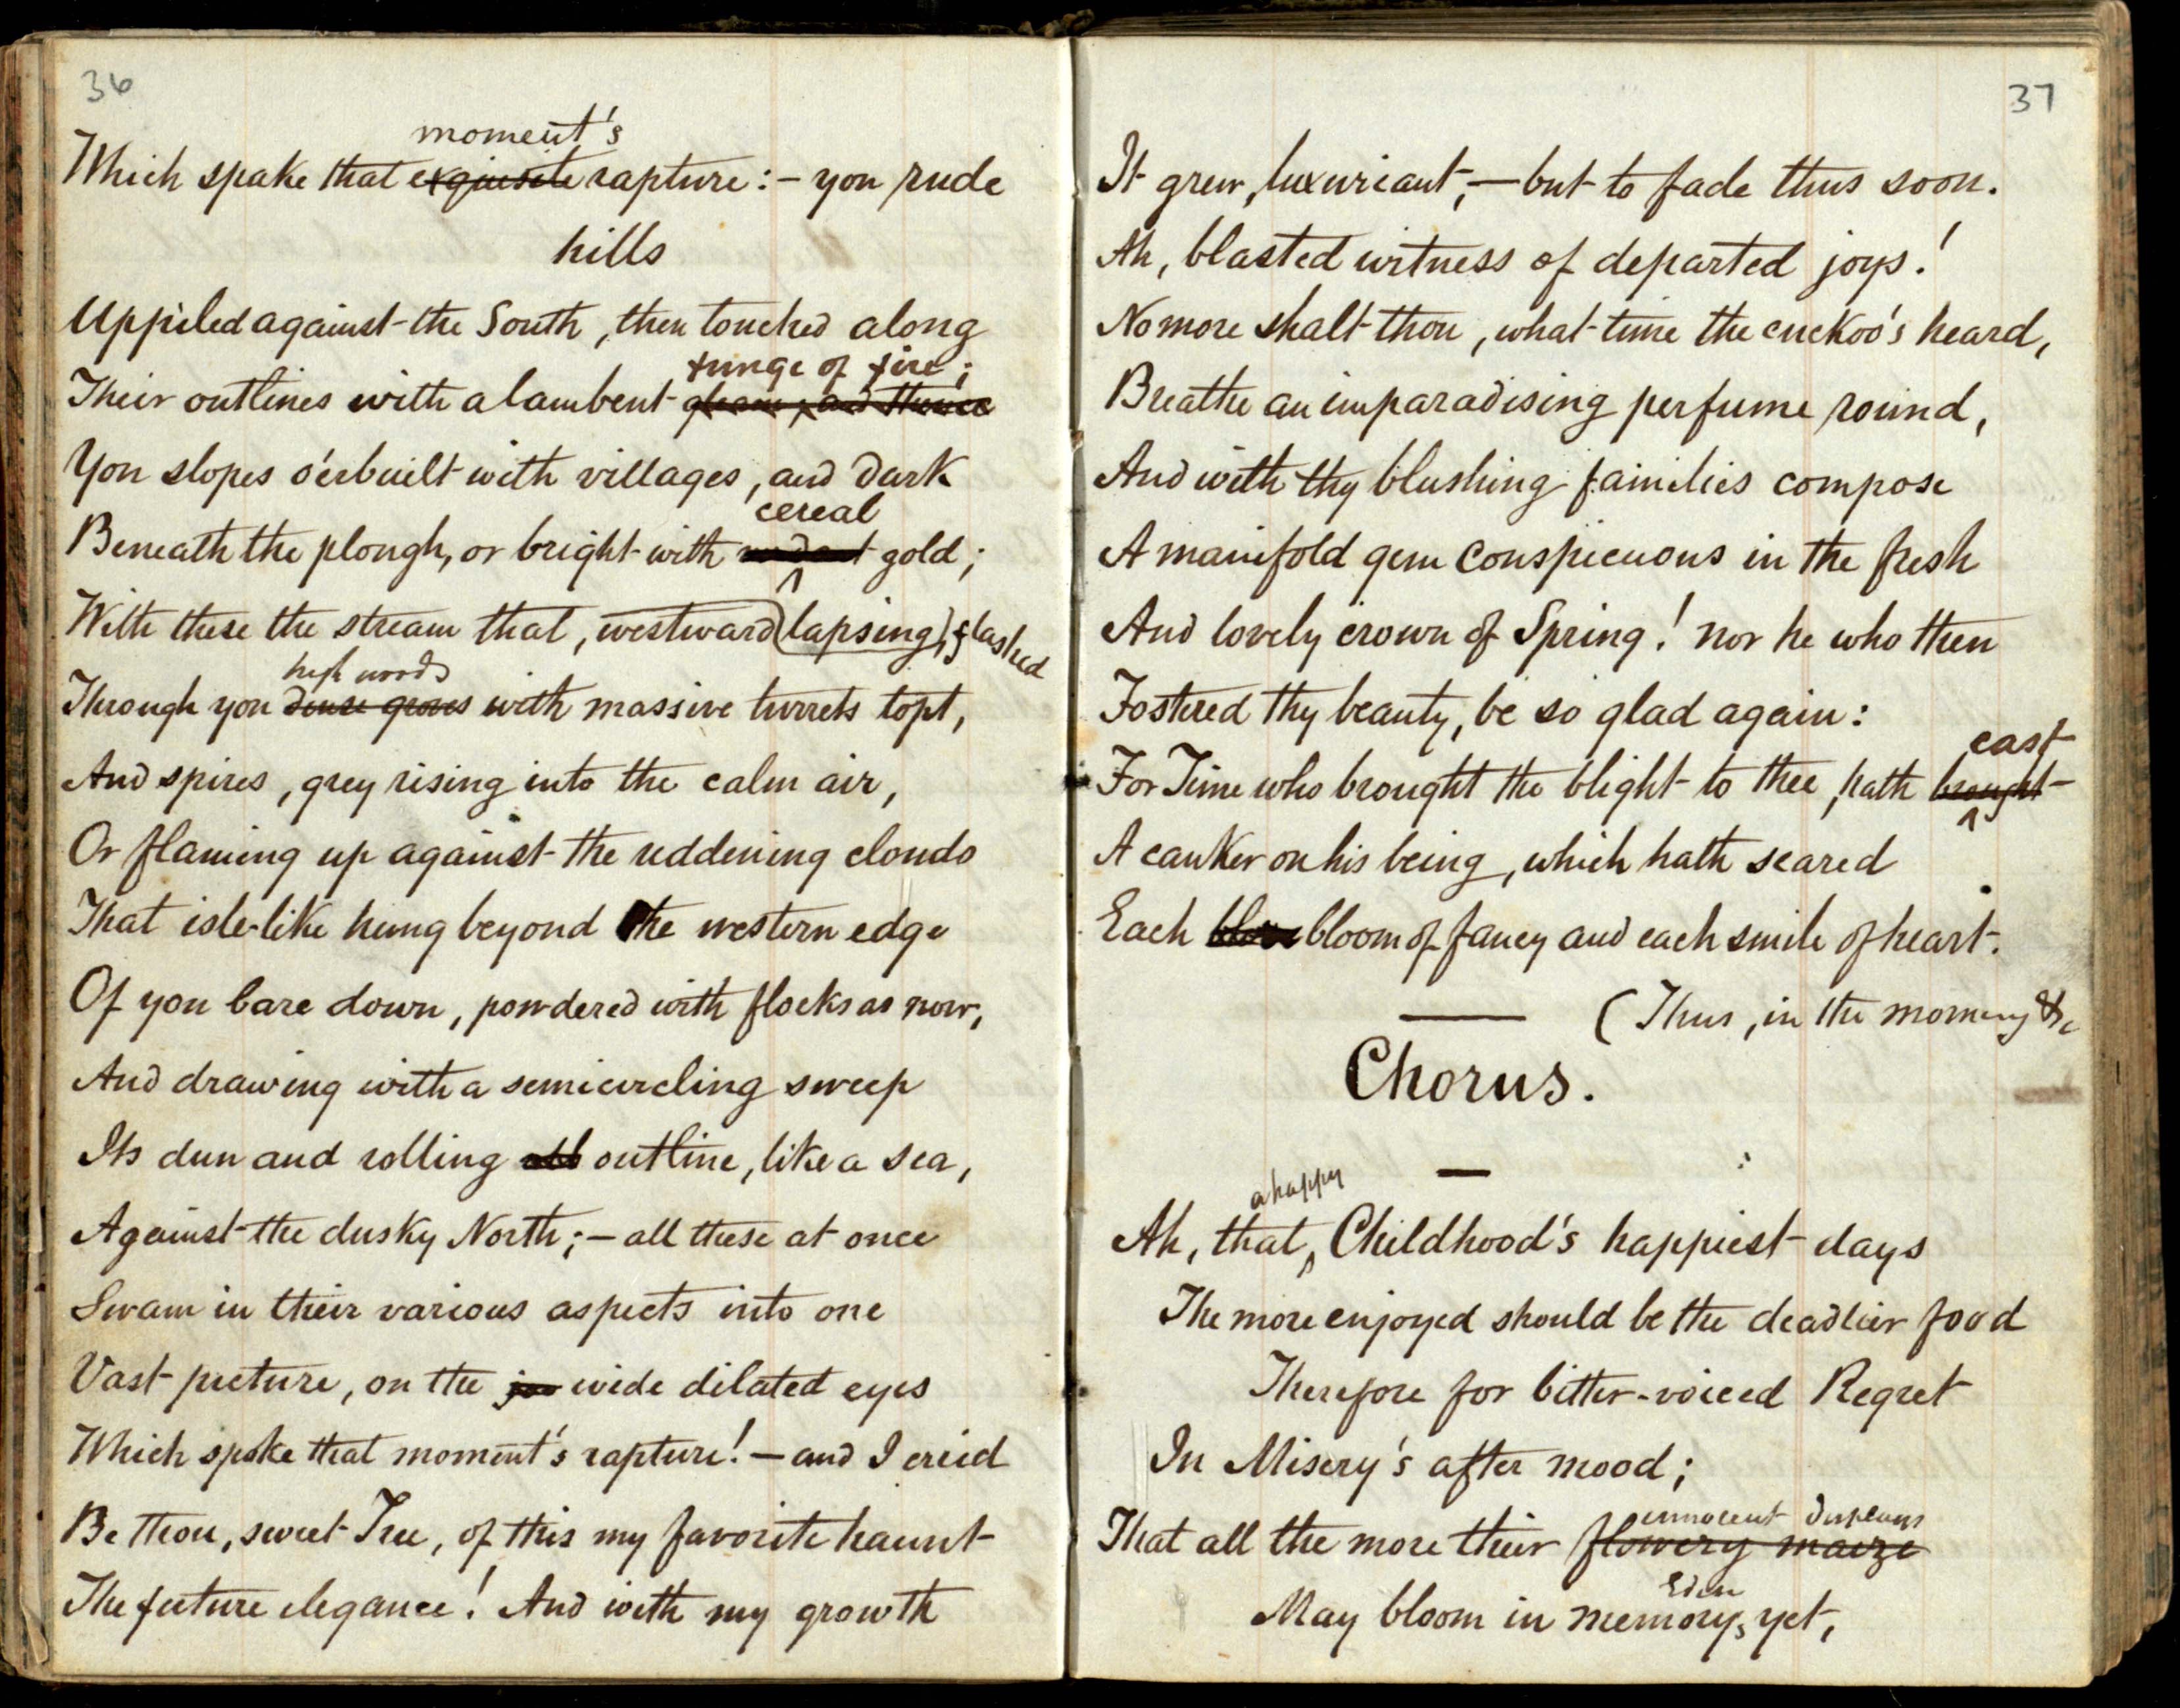 36
moment's
Which spake that exquisite rapture:- yon rude
hills
Uppiled against the South, then touched along
tinge of fire;
Their outlines with a lambent gleam, and thence
Yon slopes o'erbuilt with villages, and dark
cereal
Beneath the plough, or bright with gold;
With these the stream that, westward (lapsing), flashed
high woods
Through yon dense groves with massive turrets topt,
And spires, grey rising into the calm air,
Or flaming up against the reddening clouds
That isle-like hung beyond the western edge
Of yon bare down, powdered with flocks as now,
And drawing with a semicircling sweep
Its dun and rolling outline, like a sea,
Against the dusky North;- all these at once
Swam in their various aspects into one
Vast picture, on the wide dilated eyes
Which spoke that moment's rapture! - and I cried
Be thou, sweet Tree, of this my favorite haunt
The future elegance! And with my growth
37
It grew, luxuriant,- but to fade thus soon.
Ah, blasted witness of departed joys!
No more shalt thou, what time the cuckoo's heard,
Breathe an imparadising perfume round,
And with thy blushing families compose
A manifold gem conspicuous in the fresh
And lovely crown of Spring! nor he who then
Fostered thy beauty, be so glad again:
cast
For Time who brought the blight to thee, hath brought
A canker on his being, which hath seared
Each bloom of fancy and each smile of heart.
(Thus, in the morning &c
Chorus.
a happy
Ah, that Childhood's happiest days
The more enjoyed should be the deadlier food
Therefore for bitter-voiced Regret
In Misery's after mood;
innocent displays
That all the more their flowery maize
Eden
May bloom in memory, yet,